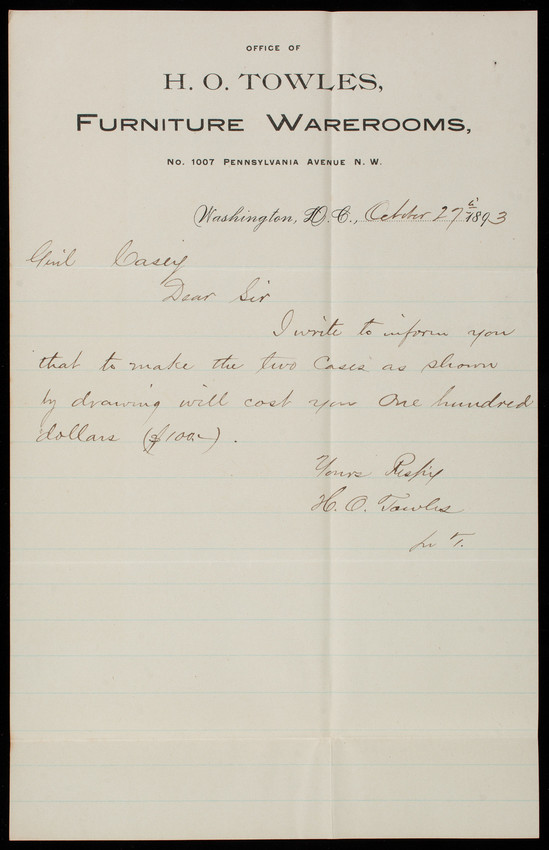 OFFICE OF
H. O. TOWLES,
FURNITURE WAREROOMS,
No. 1007 PENNSYLVANIA AVENUE N. W.
Washington, D. C., October 27th 1893
Genl Casey
Dear Sir
I write to inform you
that to make the two cases as shown
by drawing will cost you One hundred
dollars ($100.—).
Yours Respy
H. O. Towles
T.